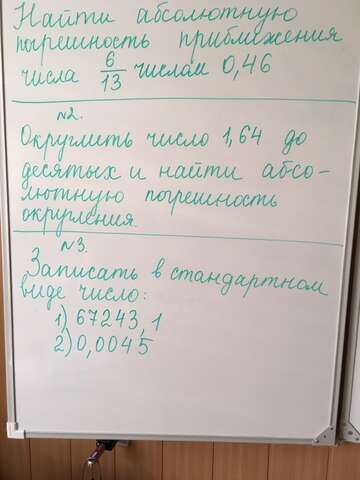 Найти абсолютную
погрешность приближения
числа 6/13 числом 0,46
№2.
Округлить число 1,64 до
десятых и найти абсо-
лютную погрешность
округления.
№3.
Записать в стандартном
виде число:
1) 67243,1
2) 0,0045